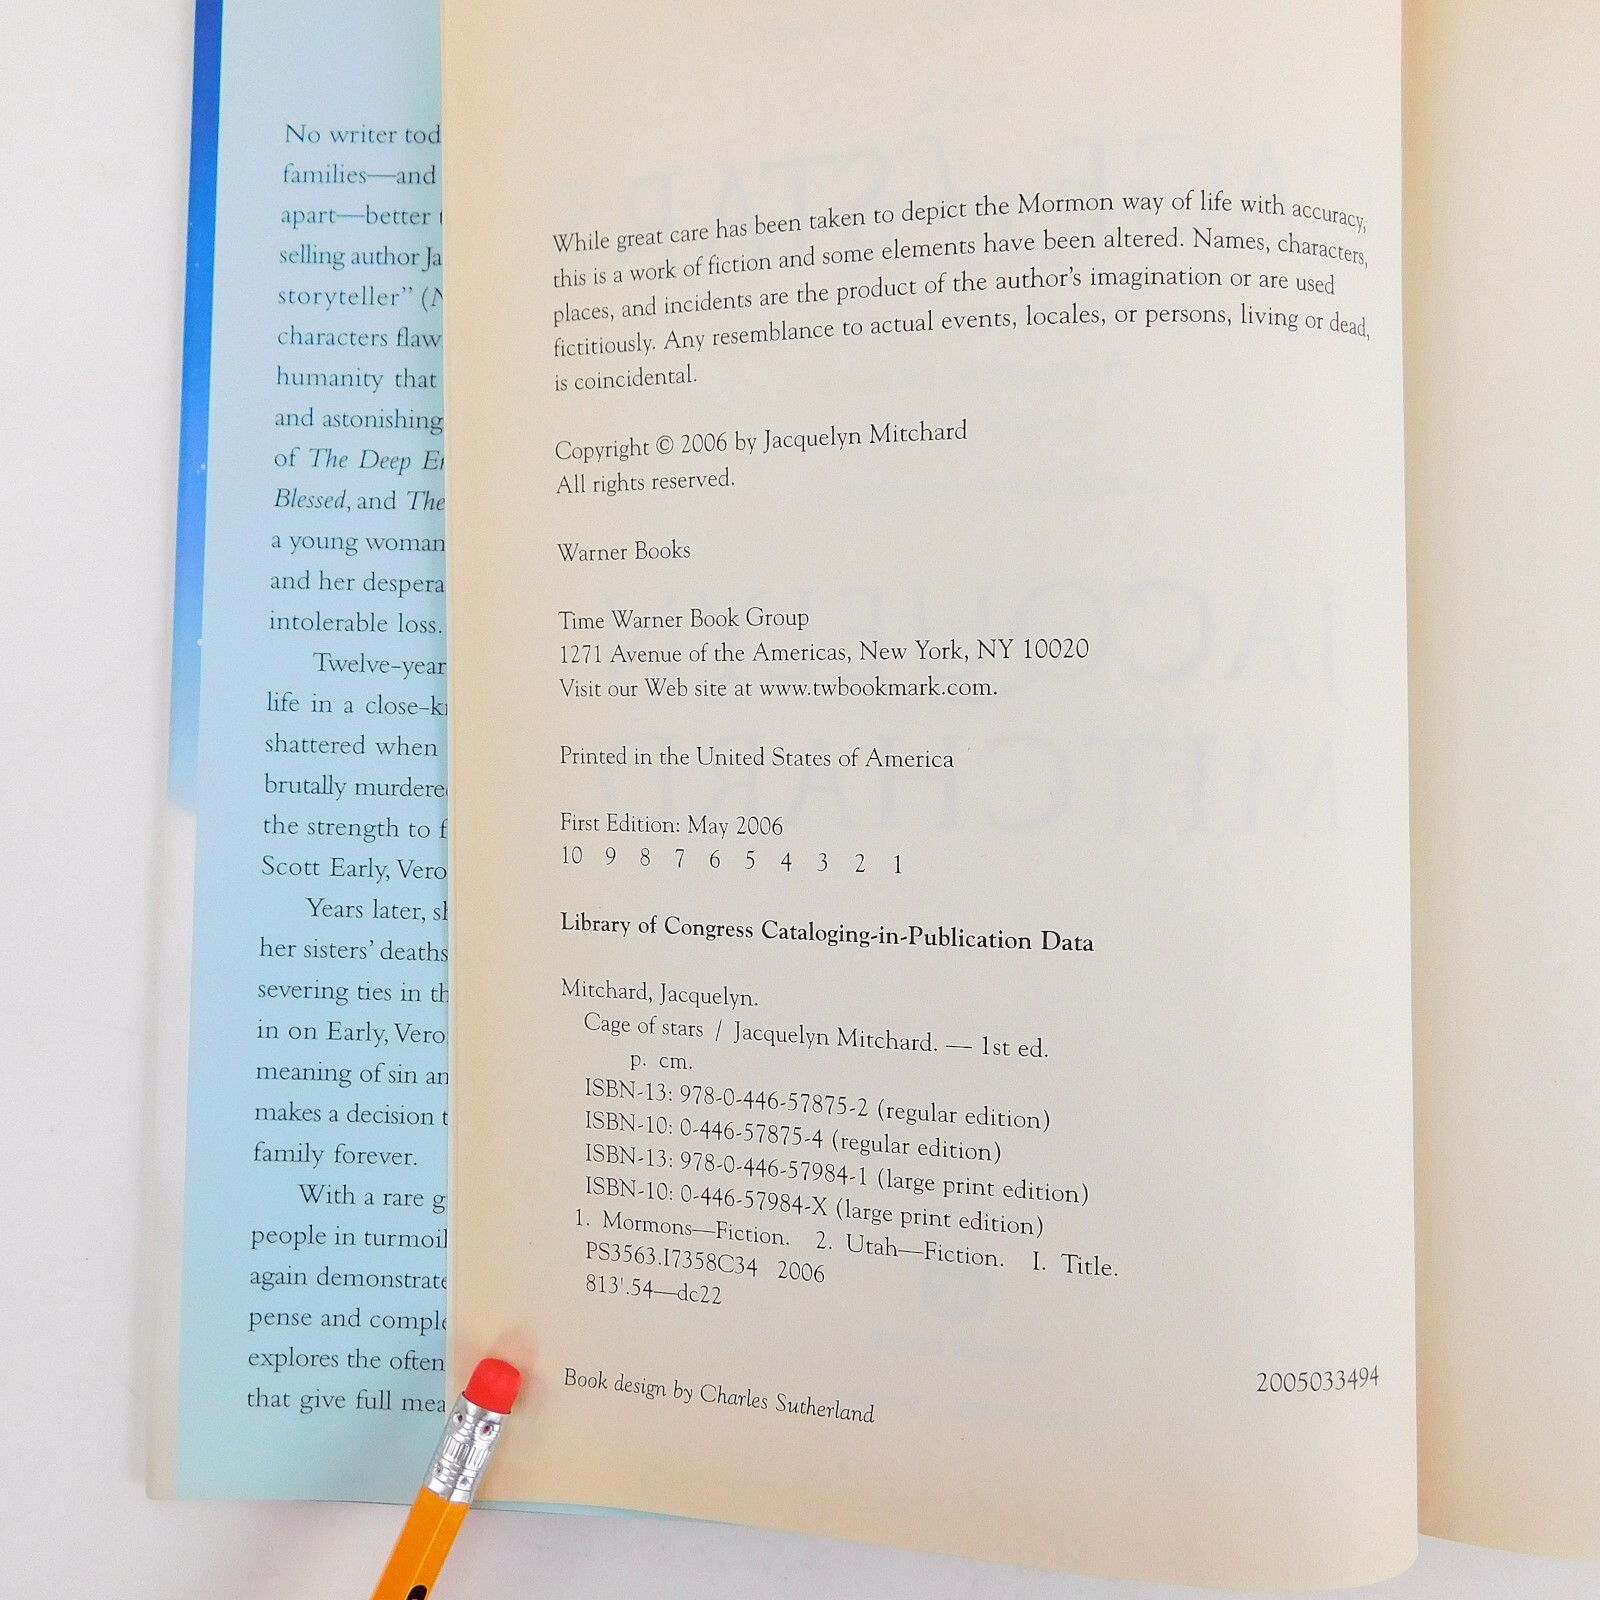 No writer tod
families—and
apart—better
selling author Ja
storyteller” (N
characters flaw
humanity that
and astonishing
of The Deep E
Blessed, and The
a young woman
and her despera
intolerable loss.
Twelve-year
life in a close-k
shattered when
brutally murdere
the strength to f
Scott Early, Vero
Years later, sh
her sisters’ deaths
severing ties in th
in on Early, Vero
meaning of sin an
makes a decision t
family forever.
With a rare g
people in turmoil
again demonstrate
pense and comple
explores the often
that give full mea
While great care has been taken to depict the Mormon way of life with accuracy,
this is a work of fiction and some elements have been altered. Names, characters,
places, and incidents are the product of the author’s imagination or are used
fictitiously. Any resemblance to actual events, locales, or persons, living or dead,
is coincidental.
Copyright © 2006 by Jacquelyn Mitchard
All rights reserved.
Warner Books
Time Warner Book Group
1271 Avenue of the Americas, New York, NY 10020
Visit our Web site at www.twbookmark.com.
Printed in the United States of America
First Edition: May 2006
10 9 8 7 6 5 4 3 2 1
Library of Congress Cataloging-in-Publication Data
Mitchard, Jacquelyn.
Cage of stars / Jacquelyn Mitchard. — 1st ed.
p. cm.
ISBN-13: 978-0-446-57875-2 (regular edition)
ISBN-10: 0-446-57875-4 (regular edition)
ISBN-13: 978-0-446-57984-1 (large print edition)
ISBN-10: 0-446-57984-X (large print edition)
1. Mormons—Fiction. 2. Utah—Fiction. I. Title.
PS3563.I7358C34 2006
813'.54—dc22
2005033494
Book design by Charles Sutherland